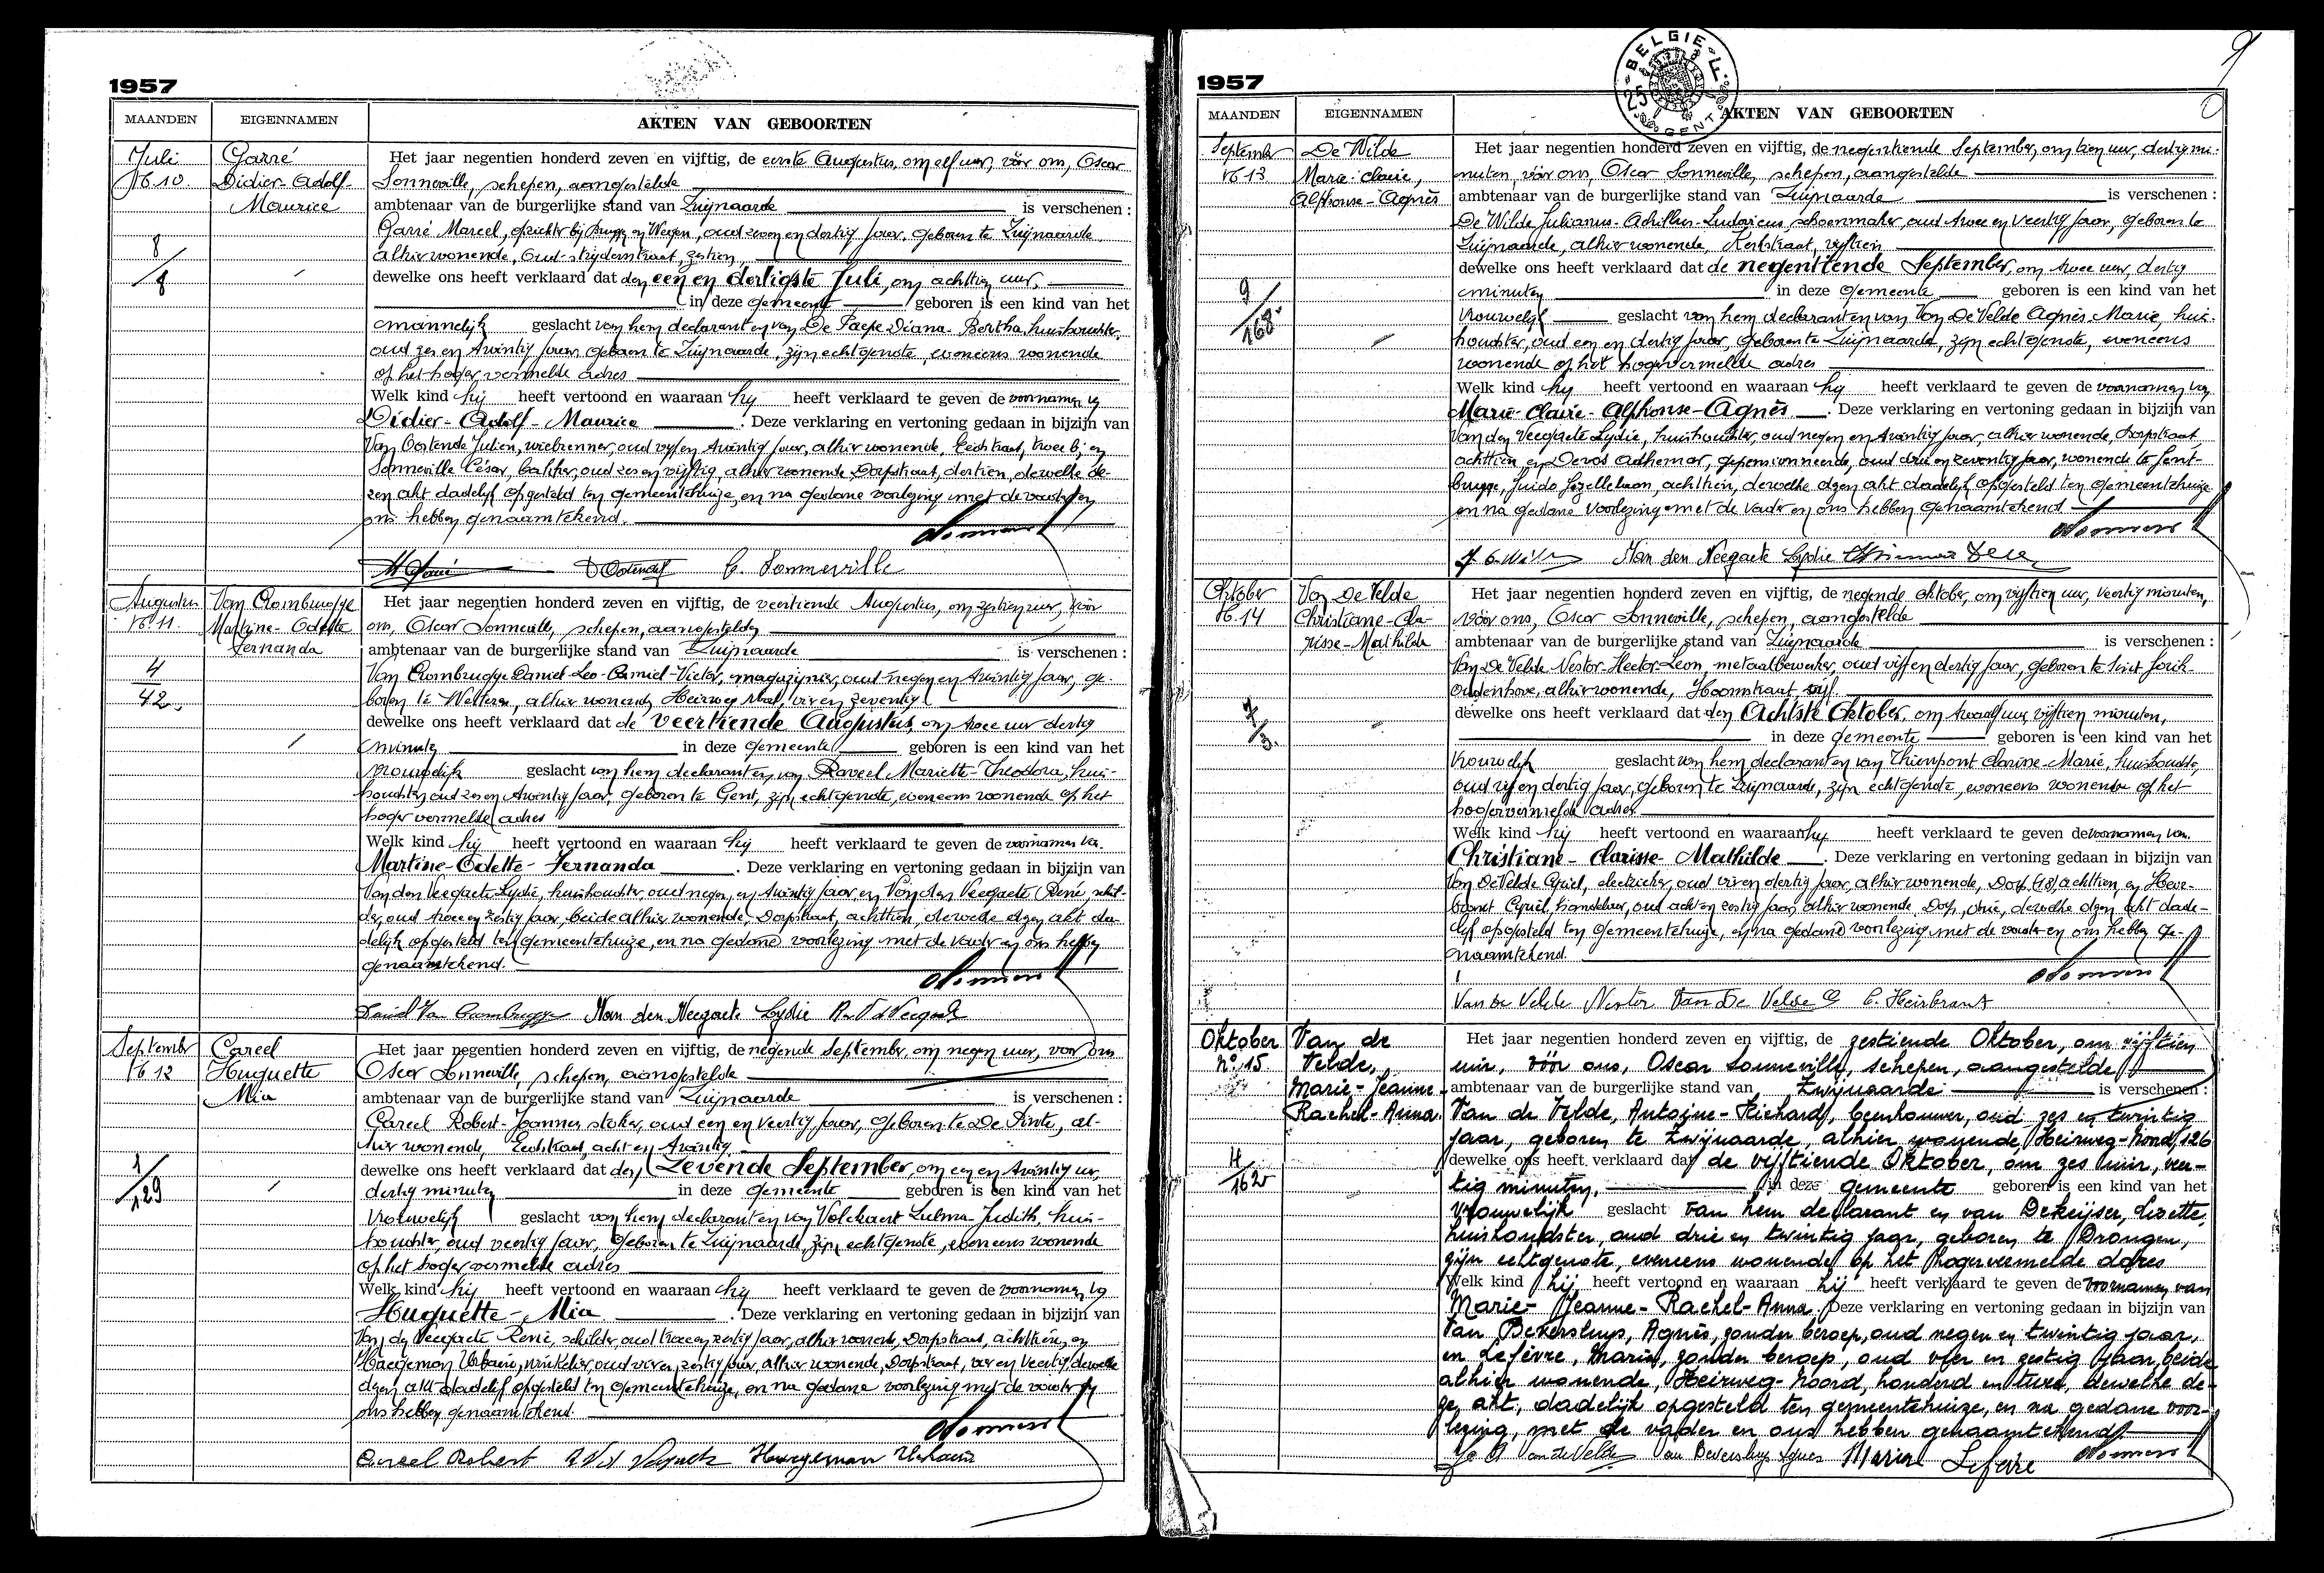 1957
MAANDEN EIGENNAMEN AKTEN VAN GEBOORTEN
Juli
N° 10.
Garré
Didier-Adolf-
Maurice
8/8
Het jaar negentien honderd zeven en vijftig, de eerste Augustus, om elf uur, vóór ons, Oscar
Sonneville, schepen, aangestelde
ambtenaar van de burgerlijke stand van Zwijnaarde is verschenen :
Garré Marcel, opzichter bij Bruggen en Wegen, oud zeven en dertig jaar, geboren te Zwijnaarde,
alhier wonende, Oud-strijderstraat, zestien,
dewelke ons heeft verklaard dat den een en dertigste Juli, om achttien uur,
in deze gemeente geboren is een kind van het
mannelijk geslacht van hem declarant en van De Paepe Diana-Bertha, huishoudster,
oud zes en twintig jaar, geboren te Zwijnaarde, zijn echtgenote, eveneens wonende
op het hoger vermelde adres
Welk kind hij heeft vertoond en waaraan hij heeft verklaard te geven de voornamen van
Didier-Adolf-Maurice . Deze verklaring en vertoning gedaan in bijzijn van
Van Oostende Julien, oud vijf en twintig jaar, alhier wonende, en
Sonneville César, bakker, oud zes en vijftig, alhier wonende, Dorpstraat, dertien, dewelke de-
zen akt dadelijk opgesteld ten gemeentehuize, en na gedane voorlezing met de vader en
ons hebben genaamtekend.
C. Sonneville
Augustus
N° 11.
Van Crombrugge
Martine-Odette
Fernanda
4/42
Het jaar negentien honderd zeven en vijftig, de veertiende Augustus, om zestien uur, vóór
ons, Oscar Sonneville, schepen, aangestelde
ambtenaar van de burgerlijke stand van Zwijnaarde is verschenen :
Van Crombrugge Daniel-Leo-Camiel-Victor, magazijnier, oud negen en twintig jaar, ge-
boren te Wetteren, alhier wonende, Heirweg Noord, vier en zeventig
dewelke ons heeft verklaard dat de veertiende Augustus, om twee uur dertig
minuten in deze gemeente geboren is een kind van het
vrouwelijk geslacht van hem declarant en van Raveel Mariette-Theodora, huis-
houdster, oud zes en twintig jaar, geboren te Gent, zijn echtgenote, eveneens wonende op het
hoger vermelde adres
Welk kind hij heeft vertoond en waaraan hij heeft verklaard te geven de voornamen van
Martine-Odette-Fernanda . Deze verklaring en vertoning gedaan in bijzijn van
Van den Veegaete Lydie, huishoudster, oud negen en twintig jaar en Van den Veegaete René, schil-
der, oud twee en zestig jaar, beide alhier wonende, Dorpstraat, achttien, dewelke dezen akt da-
delijk opgesteld ten gemeentehuize, en na gedane voorlezing met de vader en ons hebben
genaamtekend.
Daniel Van Crombrugge Van den Veegaete Lydie
September
N° 12
Careel
Huguette
Mia
1/129
Het jaar negentien honderd zeven en vijftig, de negende September, om negen uur, voor ons
Oscar Sonneville, schepen, aangestelde
ambtenaar van de burgerlijke stand van Zwijnaarde is verschenen :
Careel Robert-Joannes, stoker, oud een en veertig jaar, geboren te De Pinte, al-
hier wonende, Eedstraat, acht en twintig
dewelke ons heeft verklaard dat den Zevende September, om een en twintig uur,
dertig minuten in deze gemeente geboren is een kind van het
vrouwelijk geslacht van hem declarant en van Volckaert Zulma-Judith, huis-
houdster, oud veertig jaar, geboren te Zwijnaarde, zijn echtgenote, eveneens wonende
op het hoger vermelde adres
Welk kind hij heeft vertoond en waaraan hij heeft verklaard te geven de voornamen van
Huguette-Mia . Deze verklaring en vertoning gedaan in bijzijn van
Van den Veegaete René, schilder, oud twee en zestig jaar, alhier wonende, Dorpstraat, achttien, en
Haegeman Urbain, winkelier, oud vier en zestig jaar, alhier wonende, Dorpstraat, vier en veertig, dewelke
dezen akt dadelijk opgesteld ten gemeentehuize, en na gedane voorlezing met de vader en
ons hebben genaamtekend.
Careel Robert Haegeman Urbain
1957
BELGIE
GENT
MAANDEN EIGENNAMEN AKTEN VAN GEBOORTEN
September
N° 13
De Wilde
Marie-Claire,
Alphonse-Agnès
9/168
Het jaar negentien honderd zeven en vijftig, de negentiende September, om tien uur, dertig mi-
nuten, vóór ons, Oscar Sonneville, schepen, aangestelde
ambtenaar van de burgerlijke stand van Zwijnaarde is verschenen :
De Wilde Julianus-Achilles-Ludovicus, schoenmaker, oud twee en veertig jaar, geboren te
Zwijnaarde, alhier wonende, Kerkstraat, vijftien
dewelke ons heeft verklaard dat de negentiende September, om twee uur, dertig
minuten in deze gemeente geboren is een kind van het
vrouwelijk geslacht van hem declarant en van Van De Velde Agnès-Marie, huis-
houdster, oud een en dertig jaar, geboren te Zwijnaarde, zijn echtgenote, eveneens
wonende op het hogervermelde adres
Welk kind hij heeft vertoond en waaraan hij heeft verklaard te geven de voornamen van
Marie-Claire-Alphonse-Agnès . Deze verklaring en vertoning gedaan in bijzijn van
Van den Veegaete Lydie, huishoudster, oud negen en twintig jaar, alhier wonende, Dorpstraat
achttien en Devos Adhemar, gepensionneerde, oud drie en zeventig jaar, wonende te Gent-
brugge, Guido Gezellelaan, achttien, dewelke dezen akt dadelijk opgesteld ten gemeentehuize
en na gedane voorlezing met de vader en ons hebben genaamtekend
Van den Veegaete Lydie
Oktober
N° 14
Van De Velde
Christiane-Cla-
risse-Mathilde
7/3.
Het jaar negentien honderd zeven en vijftig, de negende Oktober, om vijftien uur, veertig minuten,
vóór ons, Oscar Sonneville, schepen, aangestelde
ambtenaar van de burgerlijke stand van Zwijnaarde is verschenen :
Van De Velde Nestor-Hector-Leon, metaalbewerker, oud vijf en dertig jaar, geboren te Sint Gorik-
Oudenhove, alhier wonende, Hoornstraat, vijf.
dewelke ons heeft verklaard dat den Achtste Oktober, om twaalf uur vijftien minuten,
in deze gemeente geboren is een kind van het
vrouwelijk geslacht van hem declarant en van Thienpont Clarisse-Marie, huishoudster,
oud vijf en dertig jaar, geboren te Zwijnaarde, zijn echtgenote, eveneens wonende op het
hogervermelde adres
Welk kind hij heeft vertoond en waaraan hij heeft verklaard te geven de voornamen van
Christiane-Clarisse-Mathilde . Deze verklaring en vertoning gedaan in bijzijn van
Van De Velde Cyriel, electricker, oud vier en dertig jaar, alhier wonende, Dorp, (18) achttien, en Heir-
brant Cyriel, handelaar, oud acht en zestig jaar, alhier wonende, Dorp, drie, dewelke dezen akt dade-
lijk opgesteld ten gemeentehuize, en na gedane voorlezing met de vader en ons hebben ge-
naamtekend.
Van De Velde Nestor Van De Velde C C. Heirbrant
Oktober
N° 15
Van de
Velde,
Marie-Jeanne-
Rachel-Anna.
4/162
Het jaar negentien honderd zeven en vijftig, de zestiende Oktober, om vijftien
uur, vóór ons, Oscar Sonneville, schepen, aangestelde
ambtenaar van de burgerlijke stand van Zwijnaarde is verschenen :
Van de Velde, Antoine-Richard, beenhouwer, oud zes en twintig
jaar, geboren te Zwijnaarde, alhier wonende, Heirweg-Noord, 126
dewelke ons heeft verklaard dat de vijftiende Oktober, om zes uur, veer-
tig minuten, in deze gemeente geboren is een kind van het
vrouwelijk geslacht van hem declarant en van Dekeijser, Lizette,
huishoudster, oud drie en twintig jaar, geboren te Drongen,
zijn echtgenote, eveneens wonende op het hogervermelde adres
Welk kind hij heeft vertoond en waaraan hij heeft verklaard te geven de voornamen van
Marie-Jeanne-Rachel-Anna. Deze verklaring en vertoning gedaan in bijzijn van
Van Beversluys, Agnès, zonder beroep, oud negen en twintig jaar,
en Lefèvre, Maria, zonder beroep, oud vier en zestig jaar, beide
alhier wonende, Heirweg-Noord, honderd en twee, dewelke de-
ze akt, dadelijk opgesteld ten gemeentehuize, en na gedane voor-
lezing, met de vader en ons hebben genaamtekend
Van de Velde Van Beversluys Agnes Maria Lefevre